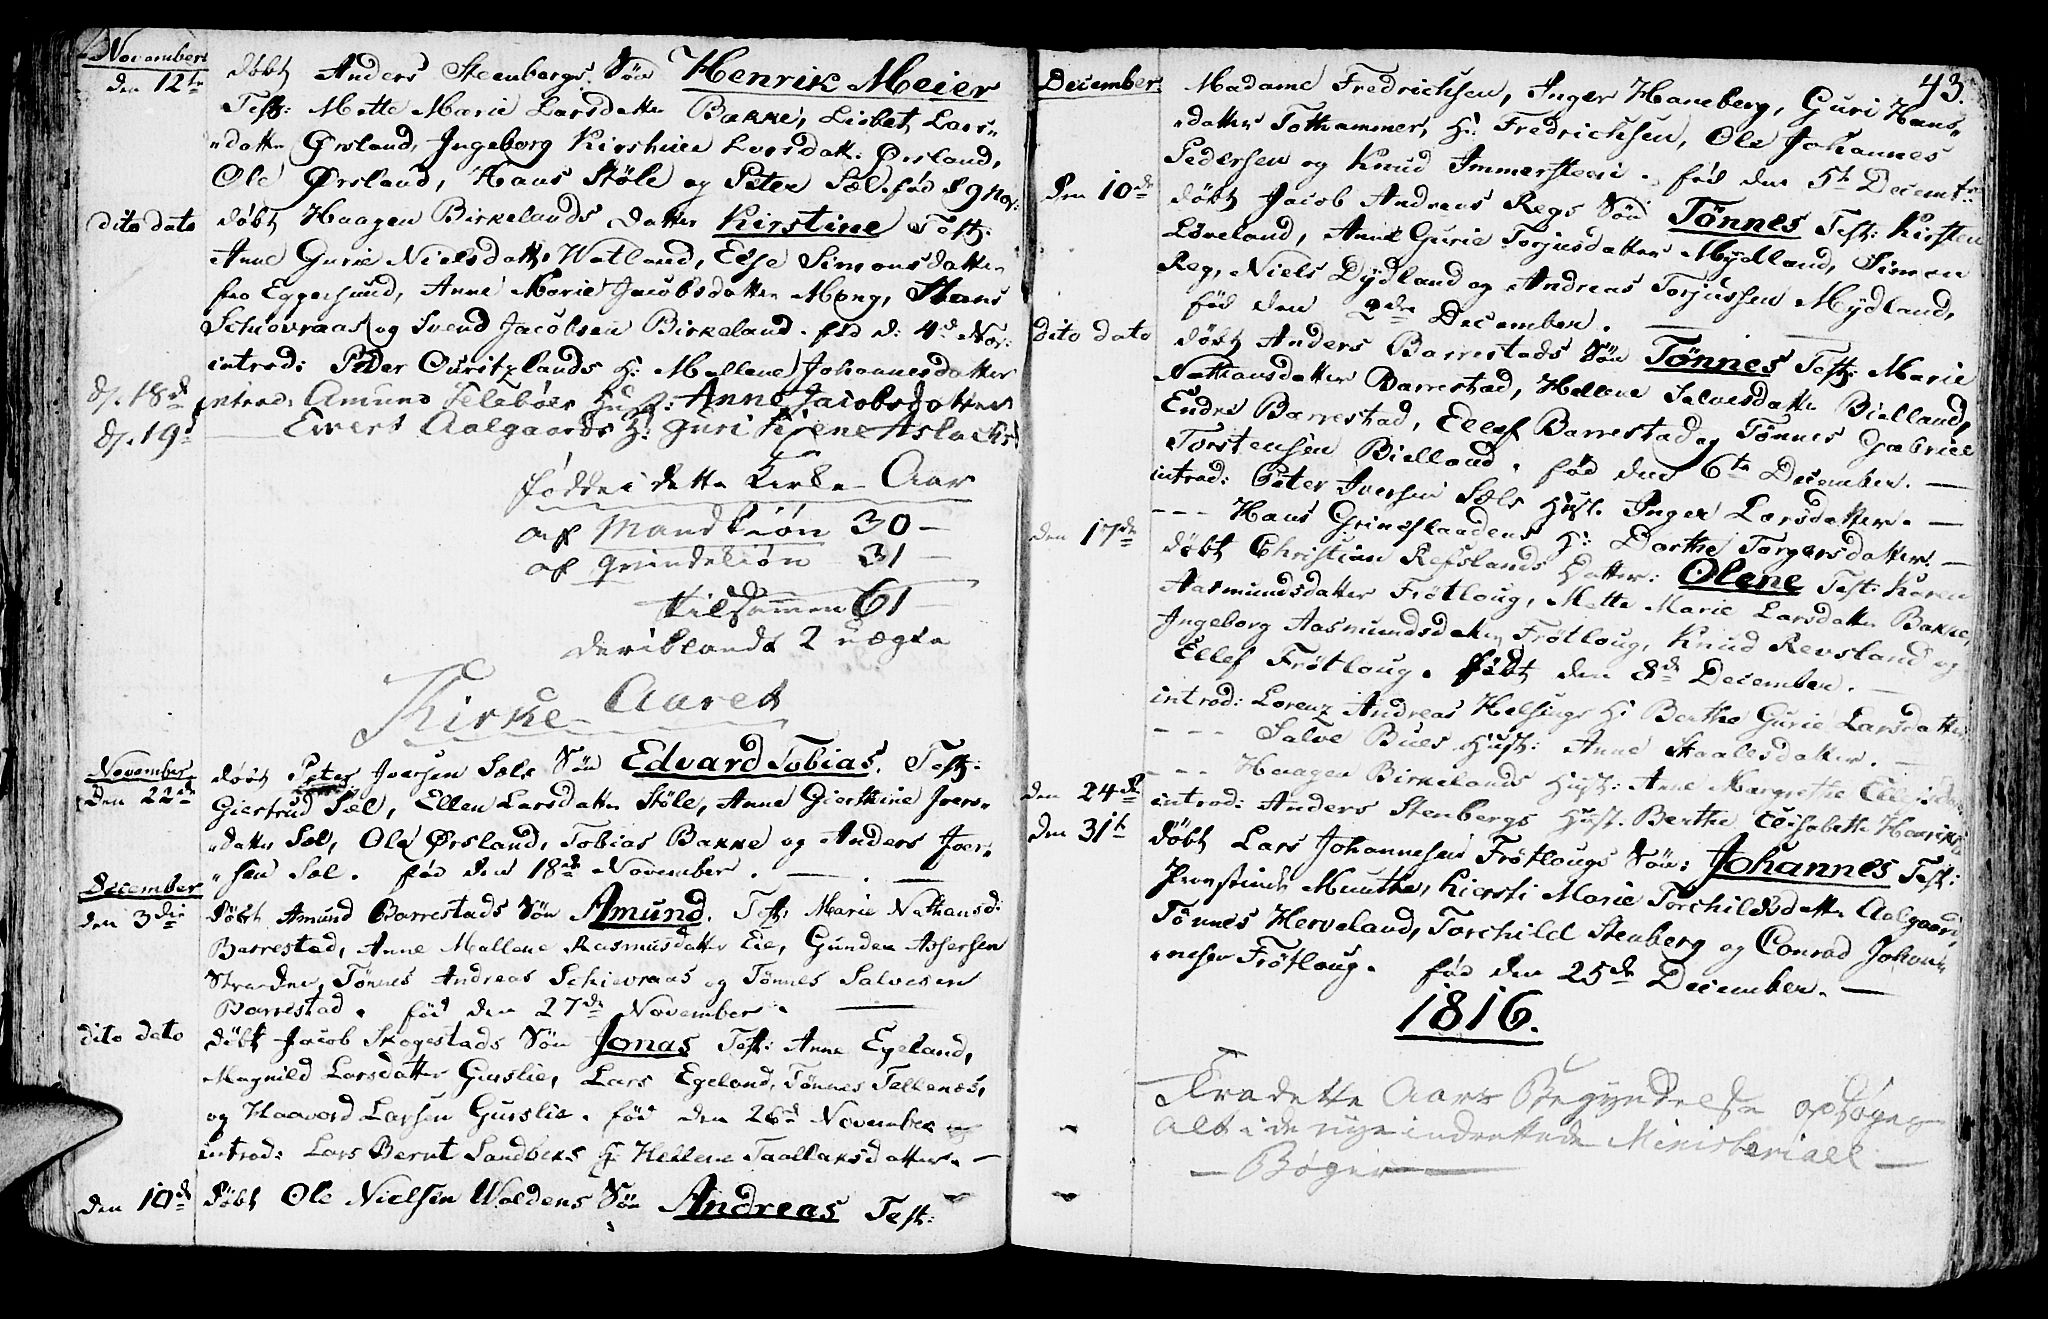 November
den 12te døbt Anders Steenbergs Søn Henrik Meier
Test: Mette Marie Larsdatter Bakke, Lisbet Lars-
datter Ørsland, Ingeborg Kirstine Larsdatt: Ørsland,
Ole Ørsland, Hans Støle og Peter Sæl. fød d 9 Nov:
dito dato døbt Haagen Birkelands Datter Kirstine Test:
Anne Gurie Nielsdatter Watland, Else Simonsdatter
fra Eggersund, Anne Marie Jacobsdatter Mong, Hans
Schiøvraas og Svend Jacobsen Birkeland. fød d: 4de Nov:
introd: Peder Ouritzlands H: Mallene Johannesdatter
d. 18de introd: Amund Helebøes Hust: Anne Jacobsdatter
d. 19d — Ewert Aalgaards H: Guri Aslachs
fødde i dette Kirke-Aar
af Mandkiøn 30 —
af Qvindekiøn 31 —
tilsammen 61 —
deriblandt 2 uægte
Kirke-Aaret
November
den 22de døbt Peter Iversen Sæls Søn Edvard Tobias. Test:
Giertrud Sæl, Ellen Larsdatter Støle, Anne Giertine Ivers-
datter Sæl, Ole Ørsland, Tobias Bakke og Anders Iver-
sen Sæl. fød den 18de November. —
December
den 3die døbt Amund Barrestads Søn Amund. Test: Marie Nathansd:
Barrestad, Anne Mallene Rasmusdatter Eie, Gunder Assersen
Stranden, Tønnes Andreas Schievraas og Tønnes Salvesen
Barrestad. fød den 27de November. —
dito dato døbt Jacob Skogestads Søn Jonas Test: Anne Egeland,
Magnild Larsdatter Gurslie, Lars Egeland, Tønnes Tellenæs,
og Haavord Larsen Gurslie. fød den 26d November
introd: Lars Bernt Sandbeks H: Hellene Taallaksdatter. —
den 10de døbt Ole Nielsen Waldens Søn Andreas Test:
43.
December Madame Fredrichsen, Inger Haneberg, Guri Hans-
datter Tothammer, Hr: Fredrichsen, Ole Johannes
Pedersen og Knud Immersteen. fød den 5te Decemb:
den 10de døbt Jacob Andreas Regs Søn Tønnes Test: Kirsten
Løveland, Anne Gurie Torjusdatter Mydland, Simon
Reg, Niels Dydland og Andreas Torjussen Mydland,
fød den December.
dito dato døbt Anders Barrestads Søn Tønnes Test: Marie
Nathansdatter Barrestad, Hellene Salvesdatter Bielland,
Endre Barrestad, Ellef Barrestad og Tønnes Gabriel
Torstensen Bielland. fød den 6te December. —
introd: Peter Iversen Sæls Hust. Inger Larsdatter. —
- - - Hans Grinesgaardens H: Dorthe Torgersdatter. —
den 17de døbt Christian Refslands Datter: Olene Test: Karen
Aasmundsdatter Frøtloug, Mette Marie Larsdatter Bakke,
Ingeborg Aasmundsdatter Frøtloug, Knud Revsland og
Ellef Frøtloug. født den 8de December. —
introd: Lorenz Andreas Helsings H: Berthe Gurie Larsdatter
- - - Salve Bues Hust: Anne Staalesdatter. —
- - - Haagen Birkelands Hust: Anne Margrethe
den 24de introd: Anders Stenbergs Hust. Berthe Elisabeth Henriks
den 31te døbt Lars Johannesen Frøtlougs Søn: Johannes Test:
Provstinde Munthe, Kiersti Marie Torchildsdatter Aalgaard,
Tønnes Herveland, Torchild Stenberg og Conrad Johan-
nesen Frøtloug. fød den 25de December. —
1816.
Fra dette Aars Begyndelse
alt i de nye indrettede Ministerial —
— Bøger —